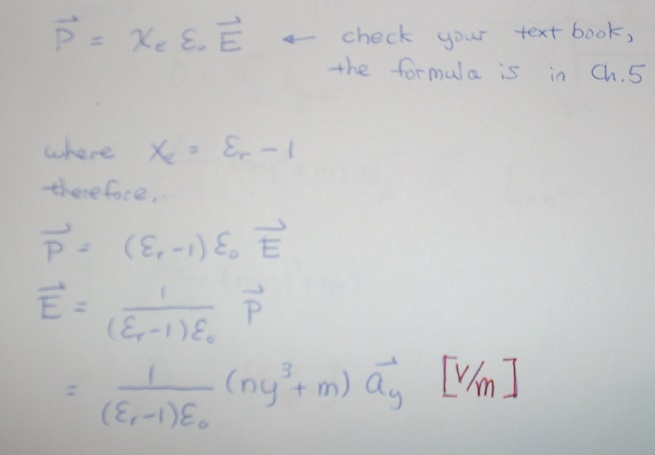 P⃗ = χₑ ε₀ E⃗ ← check your text book,
the formula is in Ch.5
where χₑ = εᵣ - 1
therefore,
P⃗ = (εᵣ-1) ε₀ E⃗
E⃗ = 1/((εᵣ-1)ε₀) P⃗
= 1/((εᵣ-1)ε₀) (ny³+m) a⃗_y [V/m]